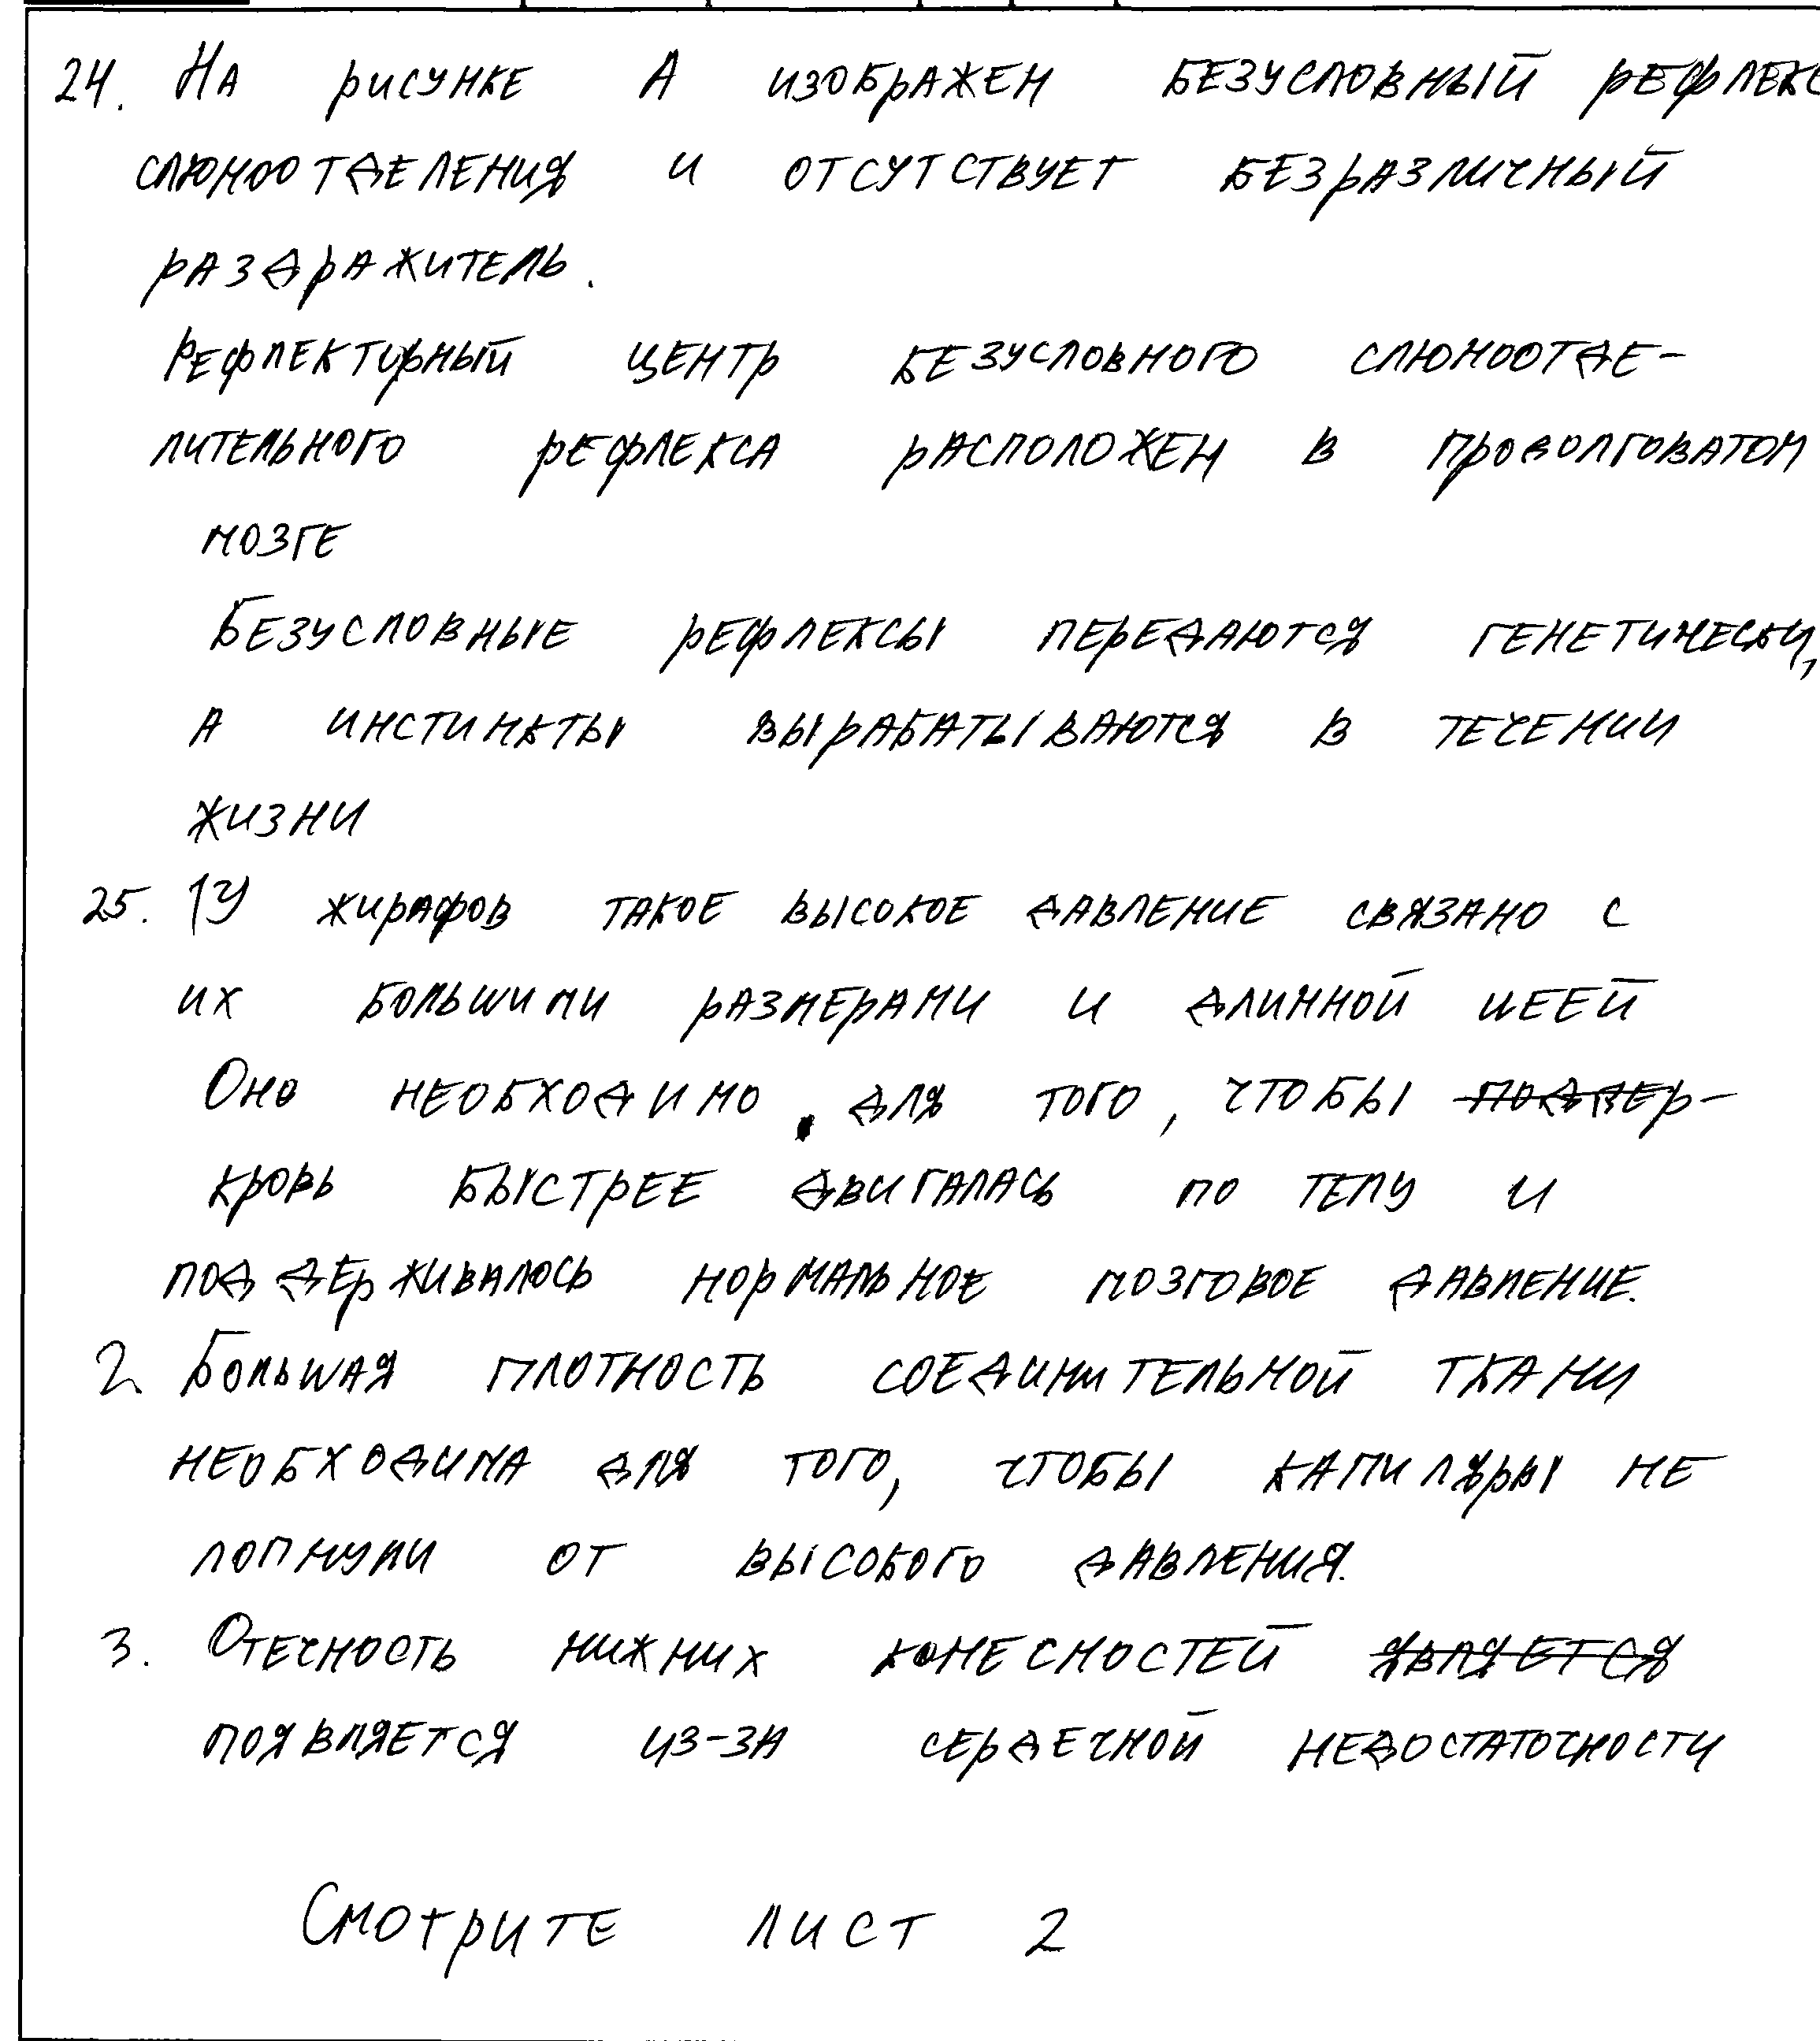 24. На рисунке А изображен безусловный рефлекс
слюноотделения и отсутствует безразличный
раздражитель.
Рефлекторный центр безусловного слюноотде-
лительного рефлекса расположен в продолговатом
мозге
Безусловные рефлексы передаются генетически,
а инстинкты вырабатываются в течении
жизни
25. 1У жирафов такое высокое давление связано с
их большими размерами и длинной шеей
Оно необходимо, для того, чтобы поддер-
кровь быстрее двигалась по телу и
поддерживалось нормальное мозговое давление.
2. Большая плотность соединительной ткани
необходима для того, чтобы капиляры не
лопнули от высокого давления.
3. Отечность нижних конесностей является
появляется из-за сердечной недостаточности
Смотрите лист 2